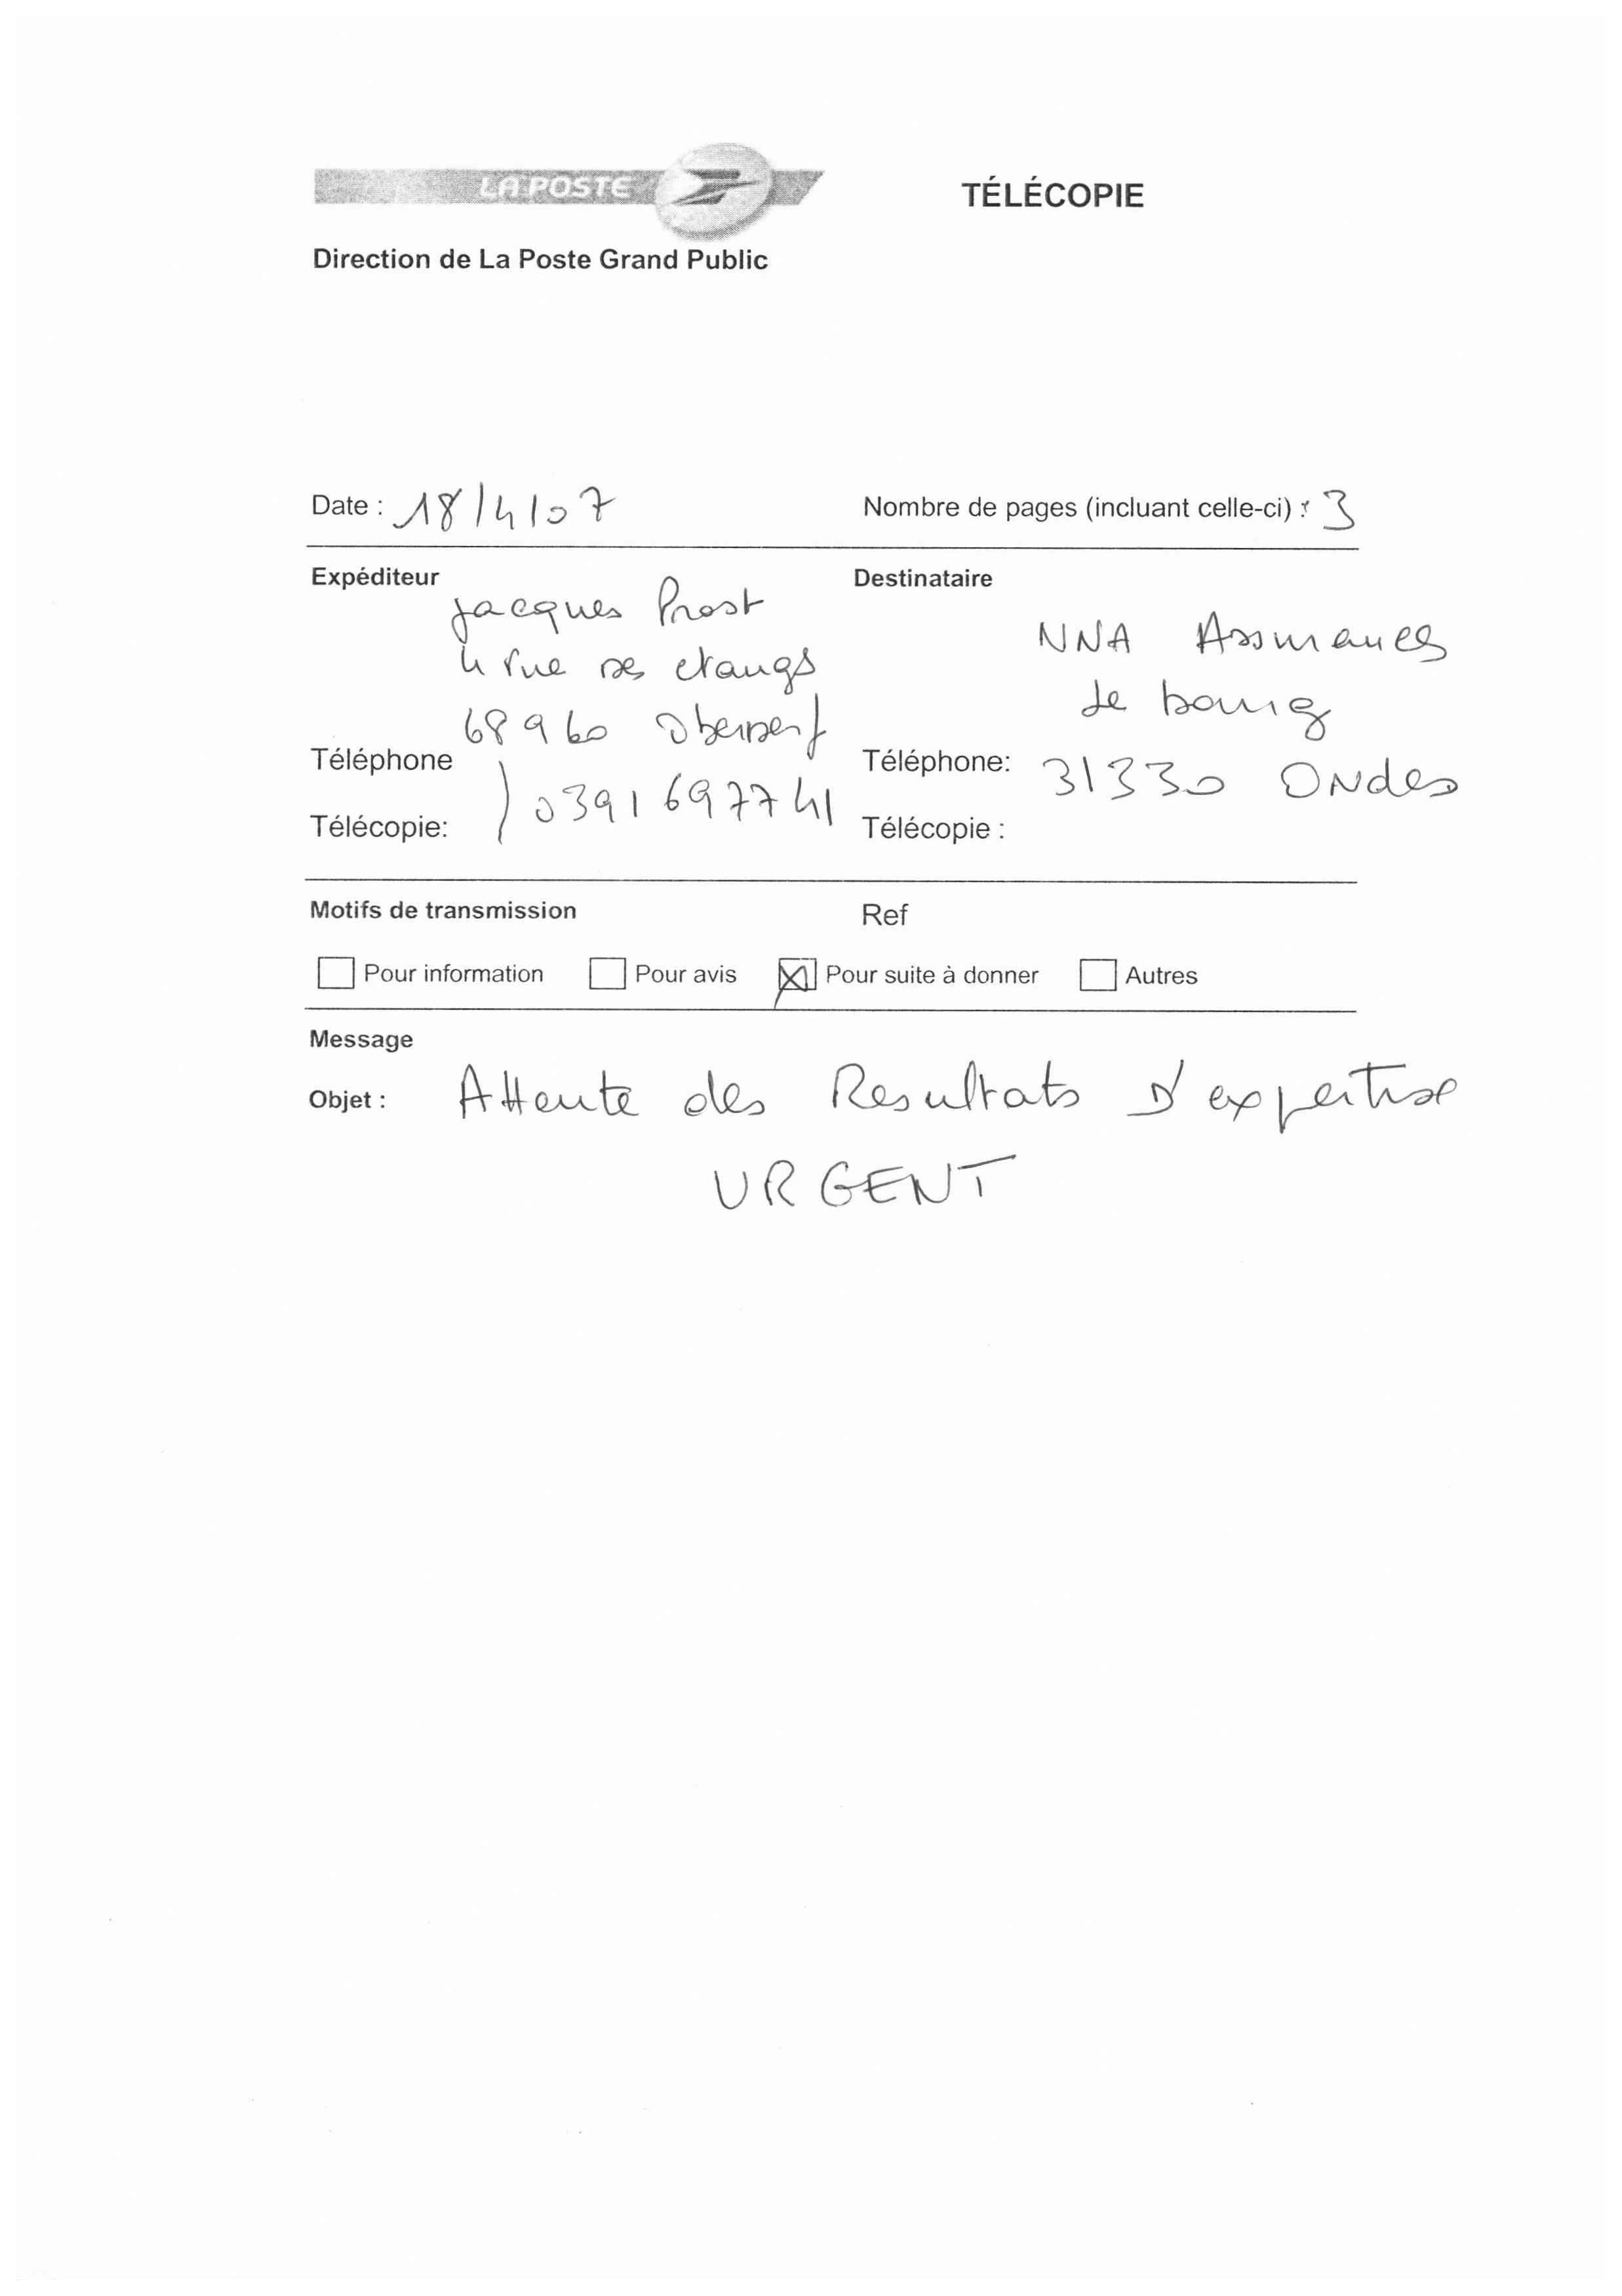 LA POSTE
TÉLÉCOPIE
Direction de La Poste Grand Public
Date : 18/4/07
Nombre de pages (incluant celle-ci) : 3
Expéditeur
Jacques Prost
4 rue des etangs
68960
Téléphone
Télécopie:
0391697741
Destinataire
NNA Assurances
Le bourg
Téléphone:
31330 Ondes
Télécopie :
Motifs de transmission
Ref
Pour information Pour avis Pour suite à donner Autres
Message
Objet : Attente des Resultats D'expertise
URGENT